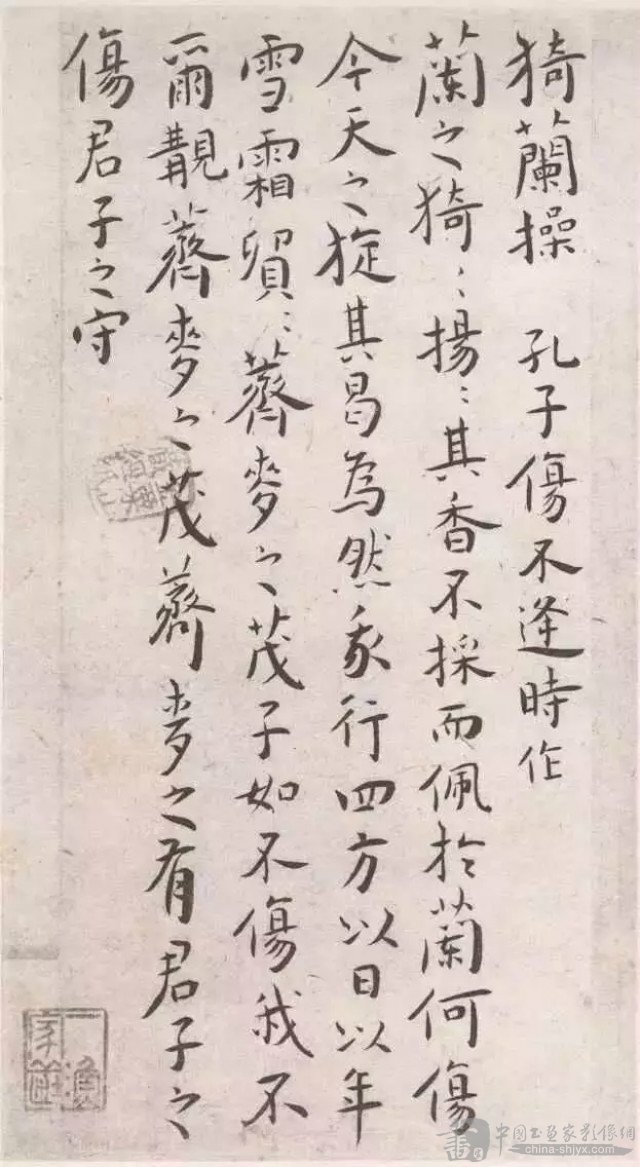 猗蘭操 孔子傷不逢時作
蘭之猗〻揚〻其香不採而佩於蘭何傷
今天之旋其曷為然我行四方以日以年
雪霜貿〻薺麥之茂子如不傷我不
爾覯薺麥之茂薺麥之有君子之
傷君子之守
中國书画家影像網
china-shjyx.com